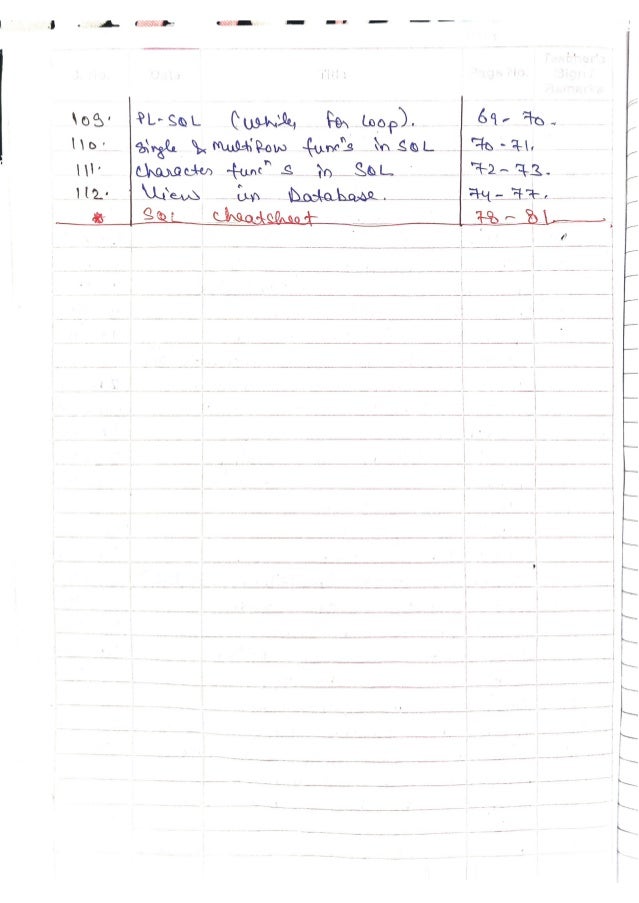 S. No. Date Title Page No. Teacher's Sign / Remarks
109. PL-SQL (while, for loop). 69-70.
110. Single & MultiRow funcⁿs in SQL 70-71.
111. Character funcⁿs in SQL 72-73.
112. View in Database. 74-77.
* SQL cheatsheet 78-81